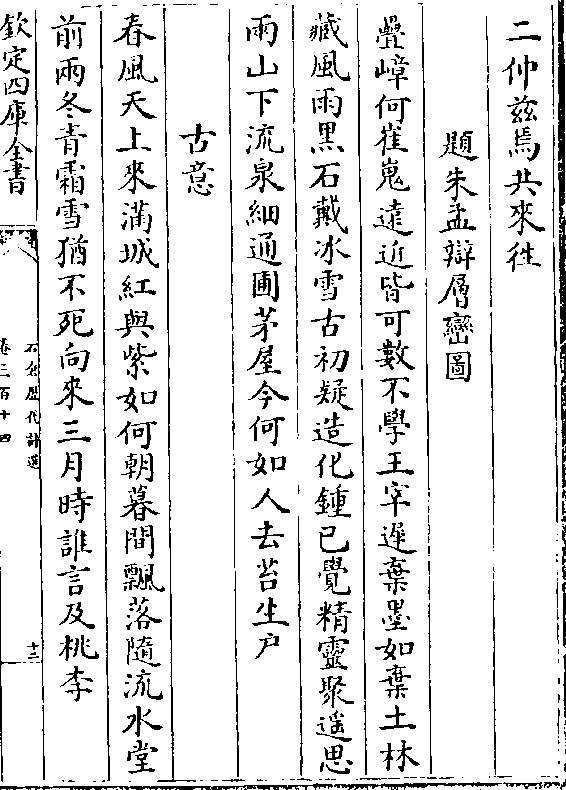 二仲玆焉共來往
題朱孟辯層巒圖
疊嶂何崔嵬遠近皆可數不學王宰遲棄墨如棄土林
藏風雨黑石戴冰雪古初疑造化鍾已覺精靈聚遥思
雨山下流泉細通圃茅屋今何如人去苔生户
古意
春風天上來滿城紅與紫如何朝暮間飄落隨流水堂
前兩冬青霜雪猶不死向來三月時誰言及桃李
欽定四庫全書
石倉歷代詩選
卷三百十四
十三